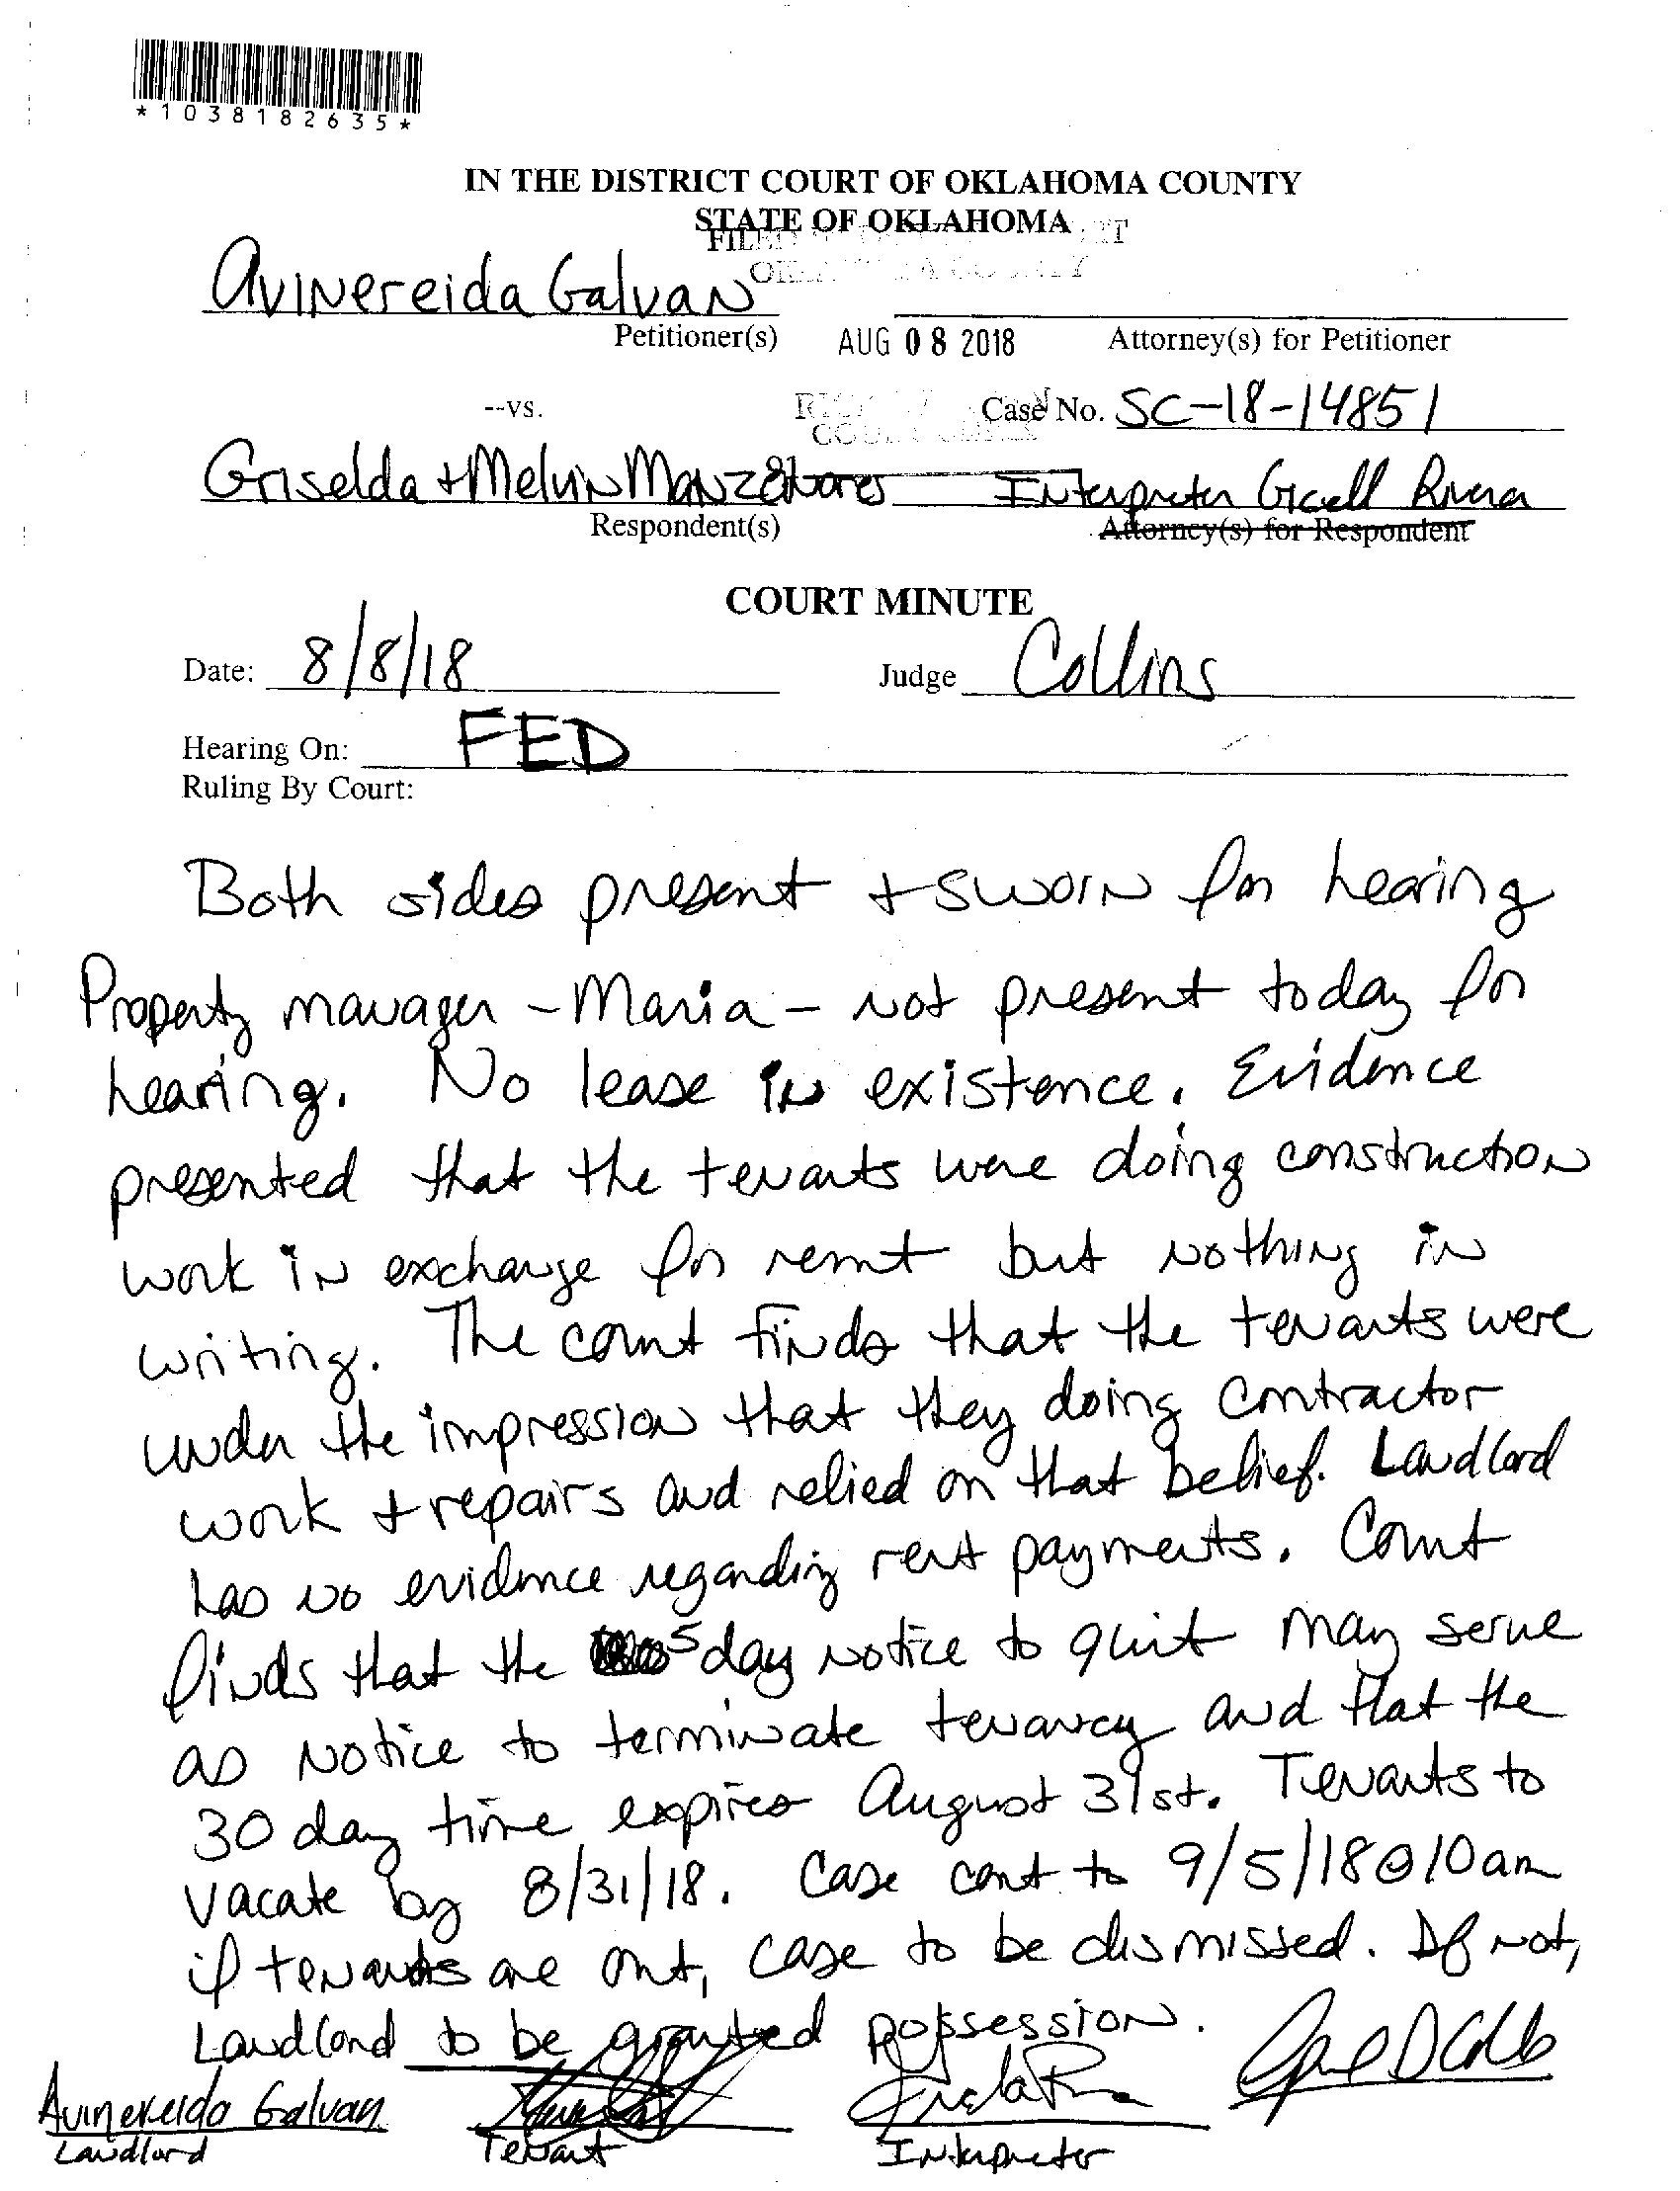 *1038182635*
IN THE DISTRICT COURT OF OKLAHOMA COUNTY
STATE OF OKLAHOMA
Avinereida Galvan
Petitioner(s) AUG 08 2018 Attorney(s) for Petitioner
--vs. Case No. SC-18-14851
Griselda + Melvin Interpreter Gicell Rivera
Respondent(s) Attorney(s) for Respondent
COURT MINUTE
Date: 8/8/18 Judge Collins
Hearing On: FED
Ruling By Court:
Both sides present + sworn for hearing
Property manager - Maria - not present today for
hearing. No lease in existence. Evidence
presented that the tenants were doing construction
work in exchange for remt but nothing in
writing. The court finds that the tenants were
under the impression that they doing contractor
work + repairs and relied on that belief. Landlord
has no evidence regarding rent payments. Court
finds that the 5 day notice to quit may serve
as notice to terminate tenancy and that the
30 day time expires August 31st. Tenants to
vacate by 8/31/18. Case cont to 9/5/18 @ 10am
if tenants are out, case to be dismissed. If not,
Landlord to be granted possession.
Avinereida Galvan
Landlord Tenant Interpreter